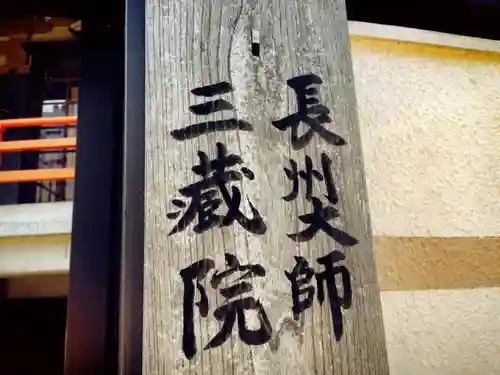 長州大師
三蔵院